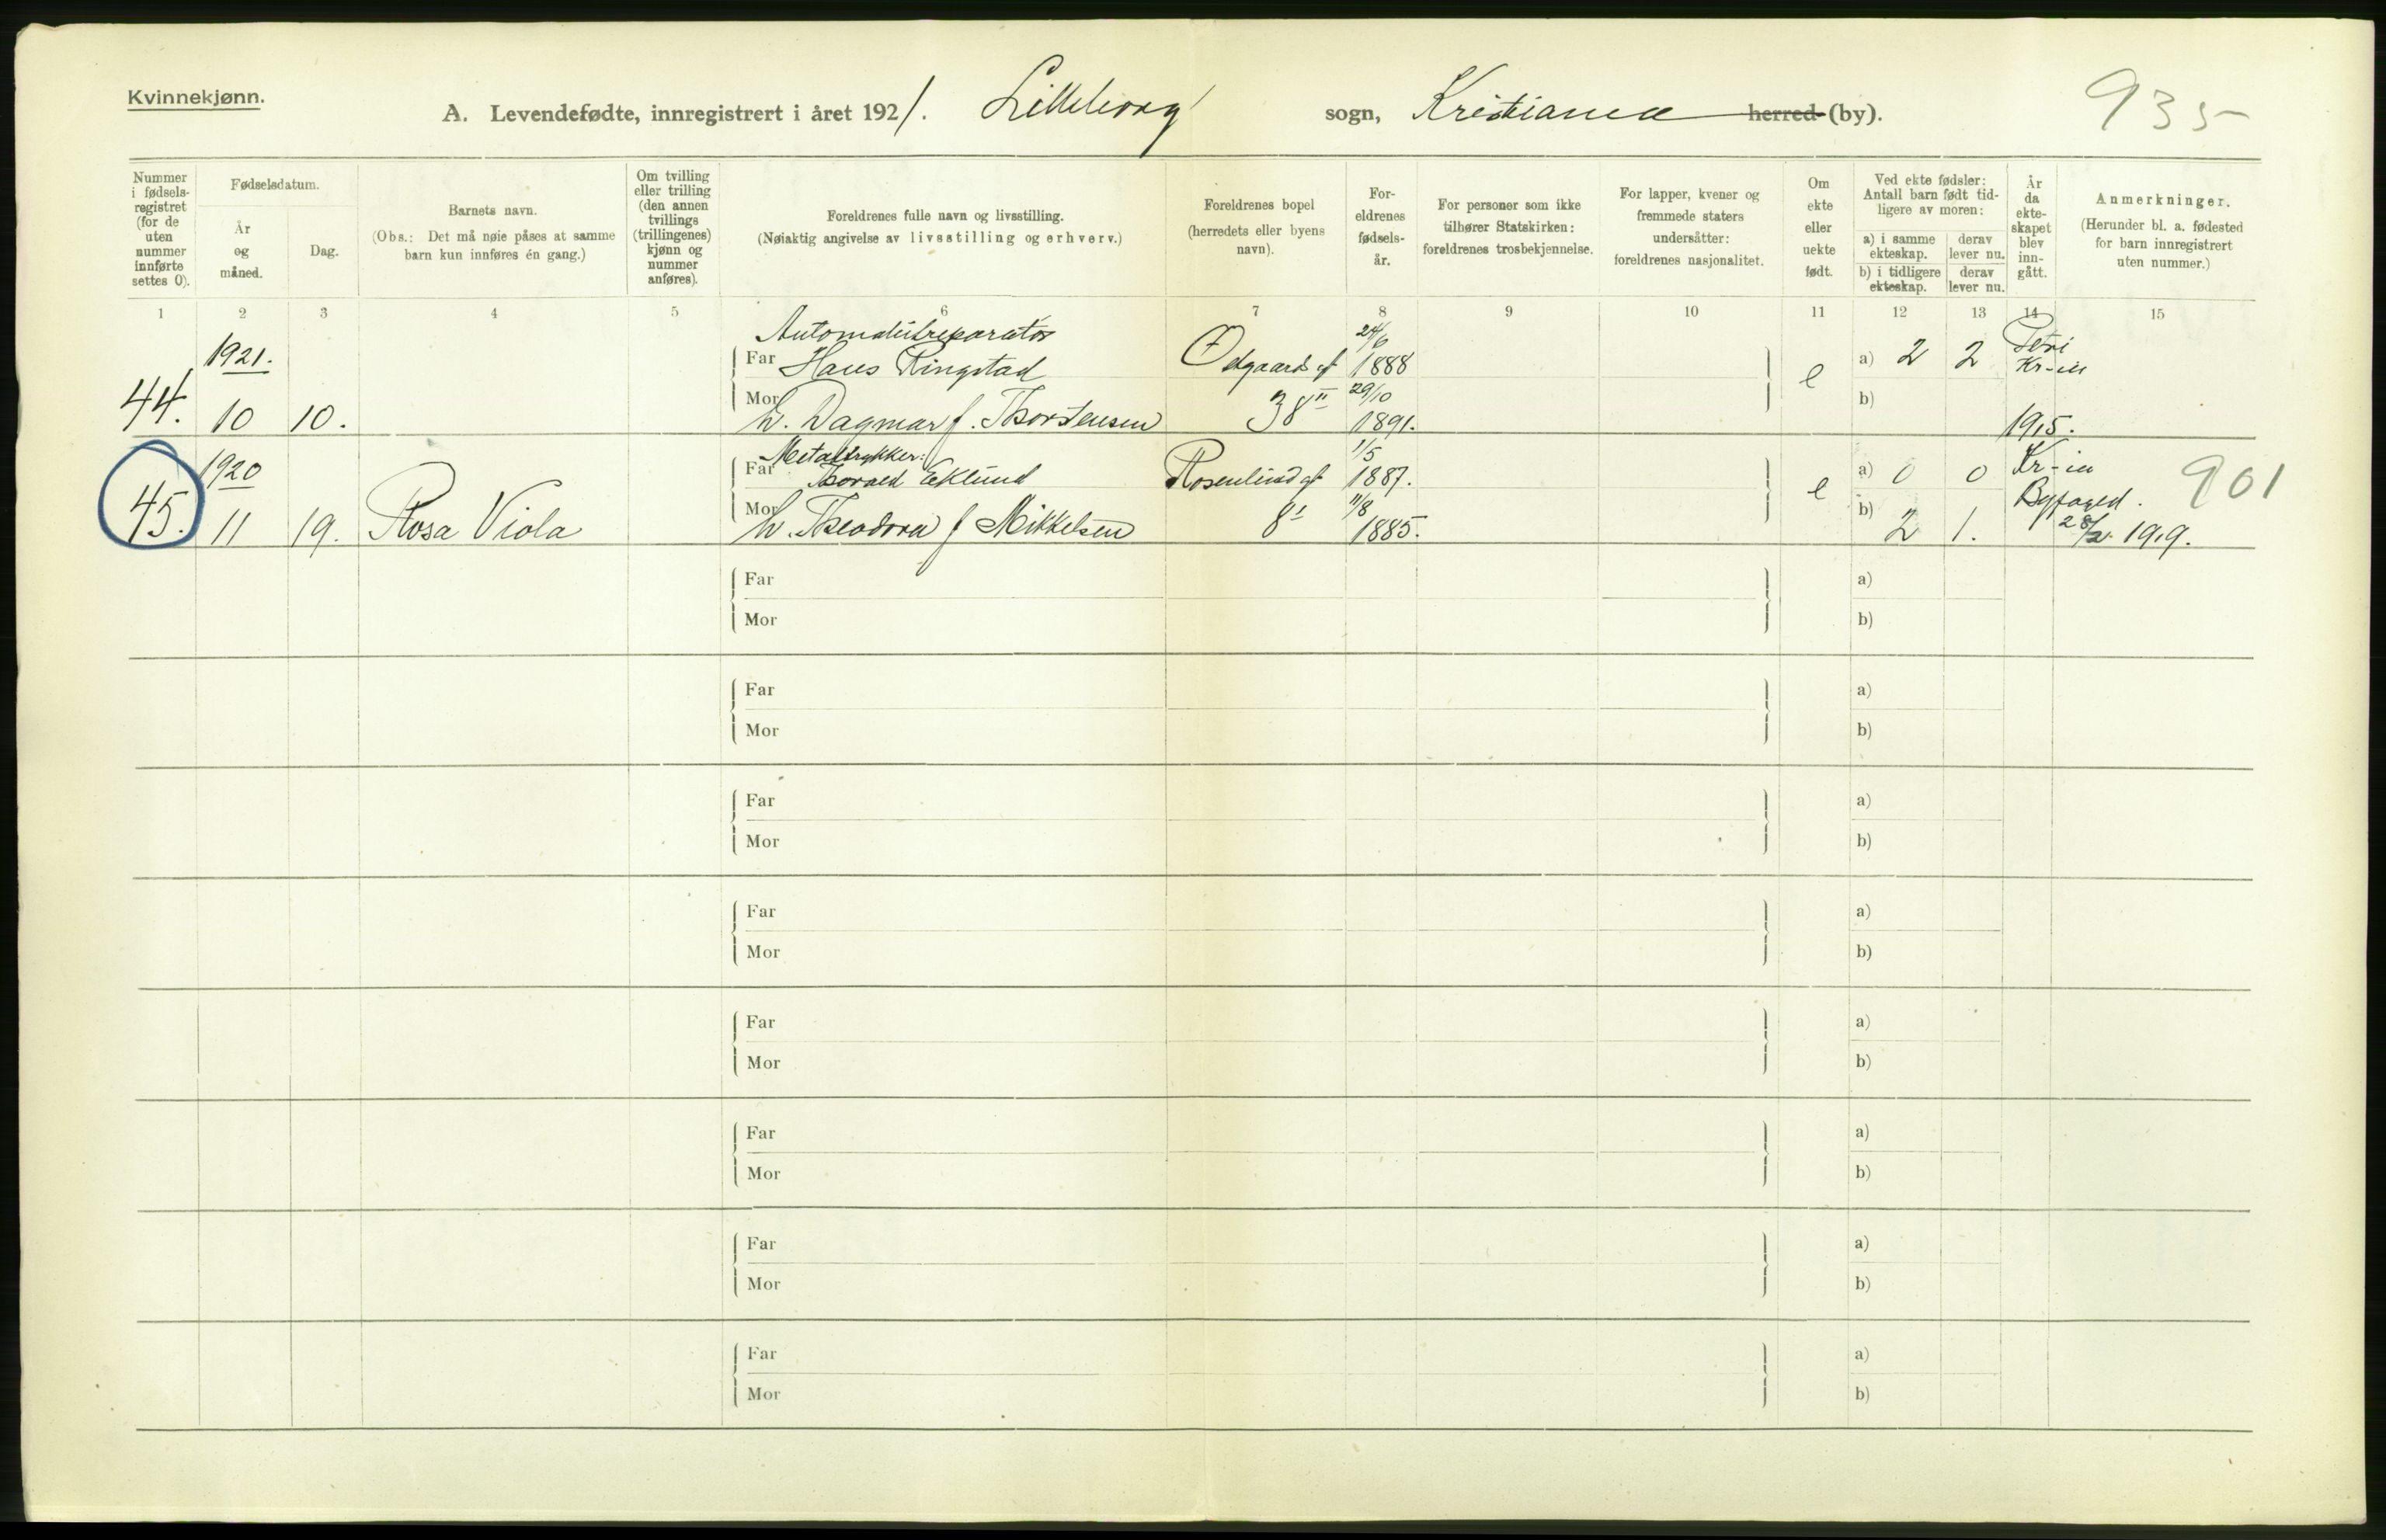 Kvinnekjønn.
A. Levendefødte, innregistrert i året 1921. Lilleborg sogn, Kristiania herred (by).
935
Nummer i fødsels-registret (for de uten nummer innførte settes 0).
Fødselsdatum.
År og måned.
Dag.
Barnets navn.
(Obs.: Det må nøie påses at samme barn kun innføres én gang.)
Om tvilling eller trilling (den annen tvillings (trillingenes) kjønn og nummer anføres).
Foreldrenes fulle navn og livsstilling.
(Nøiaktig angivelse av livsstilling og erhverv.)
Foreldrenes bopel (herredets eller byens navn).
For-eldrenes fødsels-år.
For personer som ikke tilhører Statskirken: foreldrenes trosbekjennelse.
For lapper, kvener og fremmede staters undersåtter: foreldrenes nasjonalitet.
Om ekte eller uekte født.
Ved ekte fødsler: Antall barn født tid-ligere av moren:
a) i samme ekteskap.
derav lever nu.
b) i tidligere ekteskap.
derav lever nu.
År da ekte-skapet blev inn-gått.
Anmerkninger.
(Herunder bl. a. fødested for barn innregistrert uten nummer.)
1 2 3 4 5 6 7 8 9 10 11 12 13 14 15
Automatreparatør 24/6
1921. Far Hans Ringstad 1888 a) 2 2 Petri
Kr-ia
e
Mor 29/10 b)
44. 10 10. h. Dagmar f. Thorstensen 38 II 1891. 1915.
Metaltrykker: 1/5
1920 Far Thorvald Eklund Rosenlund gt 1887. a) 0 0 Kr-ia 901
e
Mor 11/8 b) Byfoged.
45. 11 19. Rosa Viola h. Theodora f Mikkelsen 8 I 1885. 2 1. 28/2 1919.
Far a)
Mor b)
Far a)
Mor b)
Far a)
Mor b)
Far a)
Mor b)
Far a)
Mor b)
Far a)
Mor b)
Far a)
Mor b)
Far a)
Mor b)